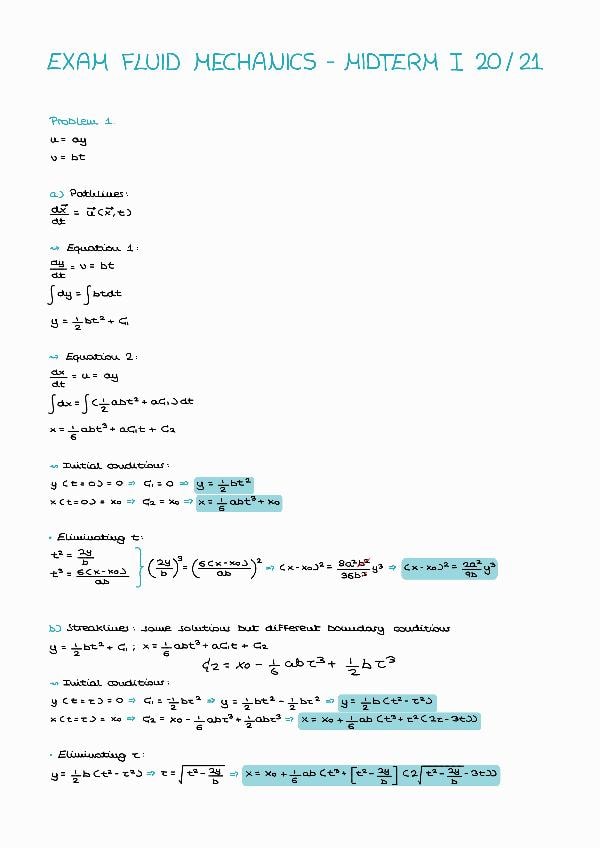 EXAM FLUID MECHANICS - MIDTERM I 20/21
Problem 1.
u = ay
v = bt
a) Pathlines:
dx⃗/dt = u⃗(x⃗,t)
~> Equation 1:
dy/dt = v = bt
∫dy = ∫btdt
y = 1/2 bt² + C₁
~> Equation 2:
dx/dt = u = ay
∫dx = ∫(1/2 abt² + aC₁)dt
x = 1/6 abt³ + aC₁t + C₂
~> Initial conditions:
y(t=0) = 0 ⇒ C₁ = 0 ⇒ y = 1/2 bt²
x(t=0) = x₀ ⇒ C₂ = x₀ ⇒ x = 1/6 abt³ + x₀
• Eliminating t:
t² = 2y/b
t³ = 6(x-x₀)/ab } (2y/b)³ = (6(x-x₀)/ab)² ⇒ (x-x₀)² = 8a²b²/36b³ y³ ⇒ (x-x₀)² = 2a²/9b y³
b) Streaklines: same solutions but different boundary conditions
y = 1/2 bt² + C₁ ; x = 1/6 abt³ + aC₁t + C₂
C₂ = x₀ - 1/6 abτ³ + 1/2 bτ³
~> Initial conditions:
y(t=τ) = 0 ⇒ C₁ = -1/2 bτ² ⇒ y = 1/2 bt² - 1/2 bτ² ⇒ y = 1/2 b(t² - τ²)
x(t=τ) = x₀ ⇒ C₂ = x₀ - 1/6 abτ³ + 1/2 abτ³ ⇒ x = x₀ + 1/6 ab(t³ + τ²(2τ - 3t))
• Eliminating τ:
y = 1/2 b(t² - τ²) ⇒ τ = √(t² - 2y/b) ⇒ x = x₀ + 1/6 ab(t³ + [t² - 2y/b](2√(t² - 2y/b) - 3t))